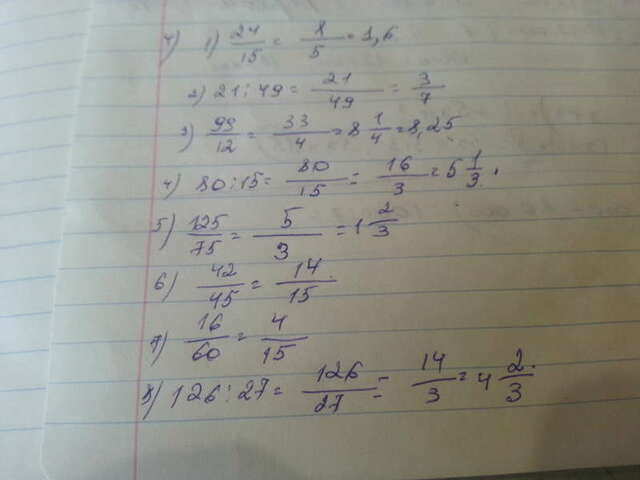 7) 1) 24/15 = 8/5 = 1,6.
2) 21:49 = 21/49 = 3/7
3) 99/12 = 33/4 = 8 1/4 = 8,25
4) 80:15 = 80/15 = 16/3 = 5 1/3.
5) 125/75 = 5/3 = 1 2/3
6) 42/45 = 14/15
7) 16/60 = 4/15
8) 126:27 = 126/27 = 14/3 = 4 2/3.